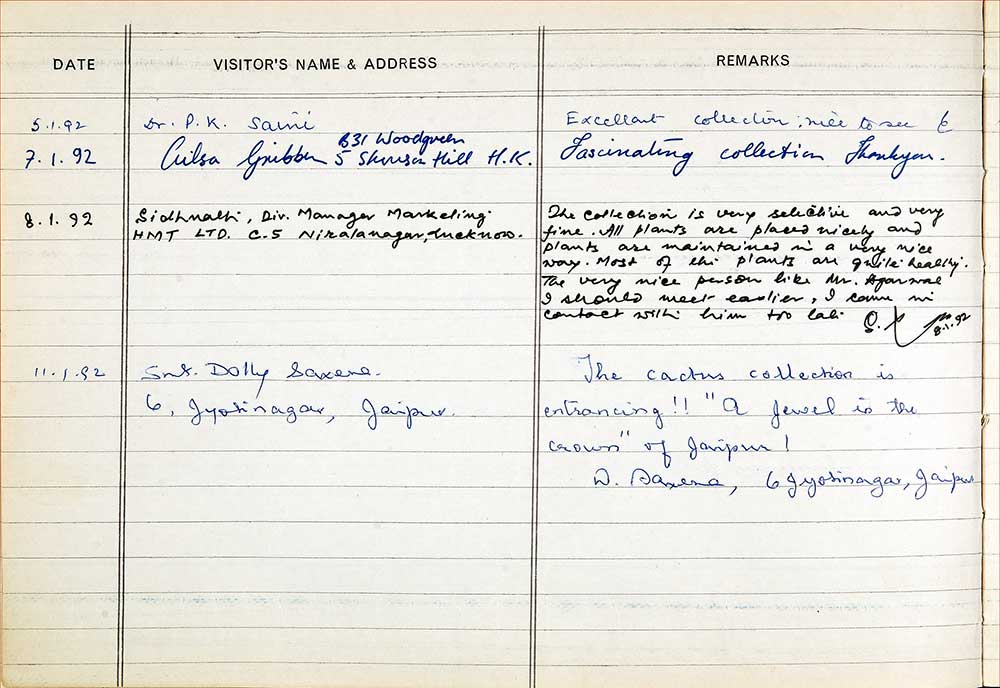 DATE VISITOR'S NAME & ADDRESS REMARKS
5.1.92 Dr. P. K. Saini Excellent collection; nice to see
7.1.92 Ailsa B31 Woodgreen
5 Hill H.K. Fascinating collection Thankyou.
8.1.92 Sidhnath, Div. Manager Marketing
HMT LTD. C-5 Niralanagar, Lucknow.
The collection is very selective and very
fine. All plants are placed nicely and
plants are maintained in a very nice
way. Most of the plants are quite healthy.
The very nice person like Mr. Agarwal
I should meet earlier, I came in
contact with him too late.
8.1.92
11.1.92 Smt. Dolly Saxena.
6, Jyotinagar, Jaipur.
The cactus collection is
entrancing!! "A Jewel in the
crown" of Jaipur!
D. Saxena, 6 Jyotinagar, Jaipur